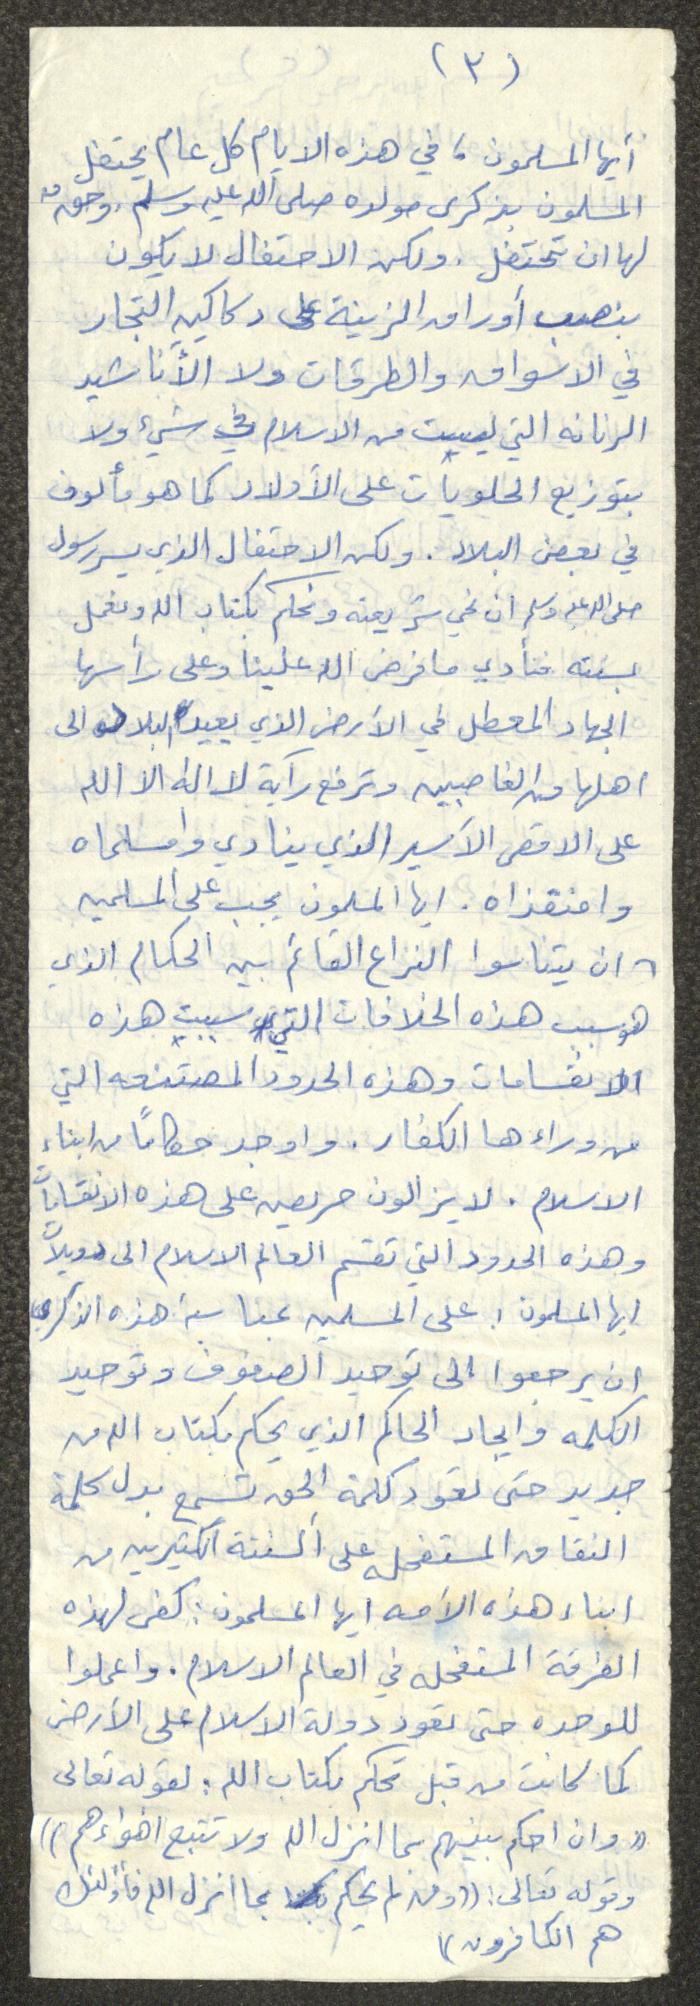 (٣)
أيها المسلمون ، في هذه الايام كل عام يحتفل
المسلمون بذكرى مولده صلى الله عليه وسلم . وحق
لها ان تحتفل . ولكن الاحتفال لا يكون
بنصب أوراق الزينة على دكاكين التجار
في الاسواق والطرقات ولا الأناشيد
الرنانه التي ليست من الاسلام في شيء ولا
بتوزيع الحلويات على الأولاد كما هو مألوف
في بعض البلاد . ولكن الاحتفال الذي يسر رسول
صلى الله عليه وسلم ان نحي شريعته ونحكم بكتاب الله ونعمل
بسنته فنأدي ما فرض الله علينا وعلى رأسها
الجهاد المعطل في الأرض الذي يعيد البلاد الى
اهلها من الغاصبين وترفع رآية لا اله الا الله
على الاقصى الأسير الذي ينادي وامسلماه
وامنقذاه . ايها المسلمون يجب على المسلمين
ان يتناسوا النزاع القائم بين الحكام الذي
هو سبب هذه الخلافات التي سببت هذه
الانقسامات وهذه الحدود المصتنعه التي
من وراءها الكفار . واوجد حكاماً من ابناء
الاسلام . لا يزالون حريصين على هذه الانقسامات
وهذه الحدود التي تقسم العالم الاسلام الى دويلات
ايها المسلمون ! على المسلمين بمناسبة هذه الذكرى
ان يرجعوا الى توحيد الصفوف وتوحيد
الكلمه وايجاد الحاكم الذي يحكم بكتاب الله من
جديد حتى تعود كلمة الحق تسمع بدل كلمة
النفاق المستفحله على ألسنة الكثيرين من
ابناء هذه الأمه ايها المسلمون : كفى لهذه
الفرقة المستفحله في العالم الاسلام . واعملوا
للوحده حتى تعود دولة الاسلام على الأرض
كما كانت من قبل تحكم بكتاب الله : لقوله تعالى
« وان احكم بينهم بما انزل الله ولا تتبع اهواءهم ))
وقوله تعالى : (( ومن لم يحكم بما انزل الله فأولئك
هم الكافرون ))